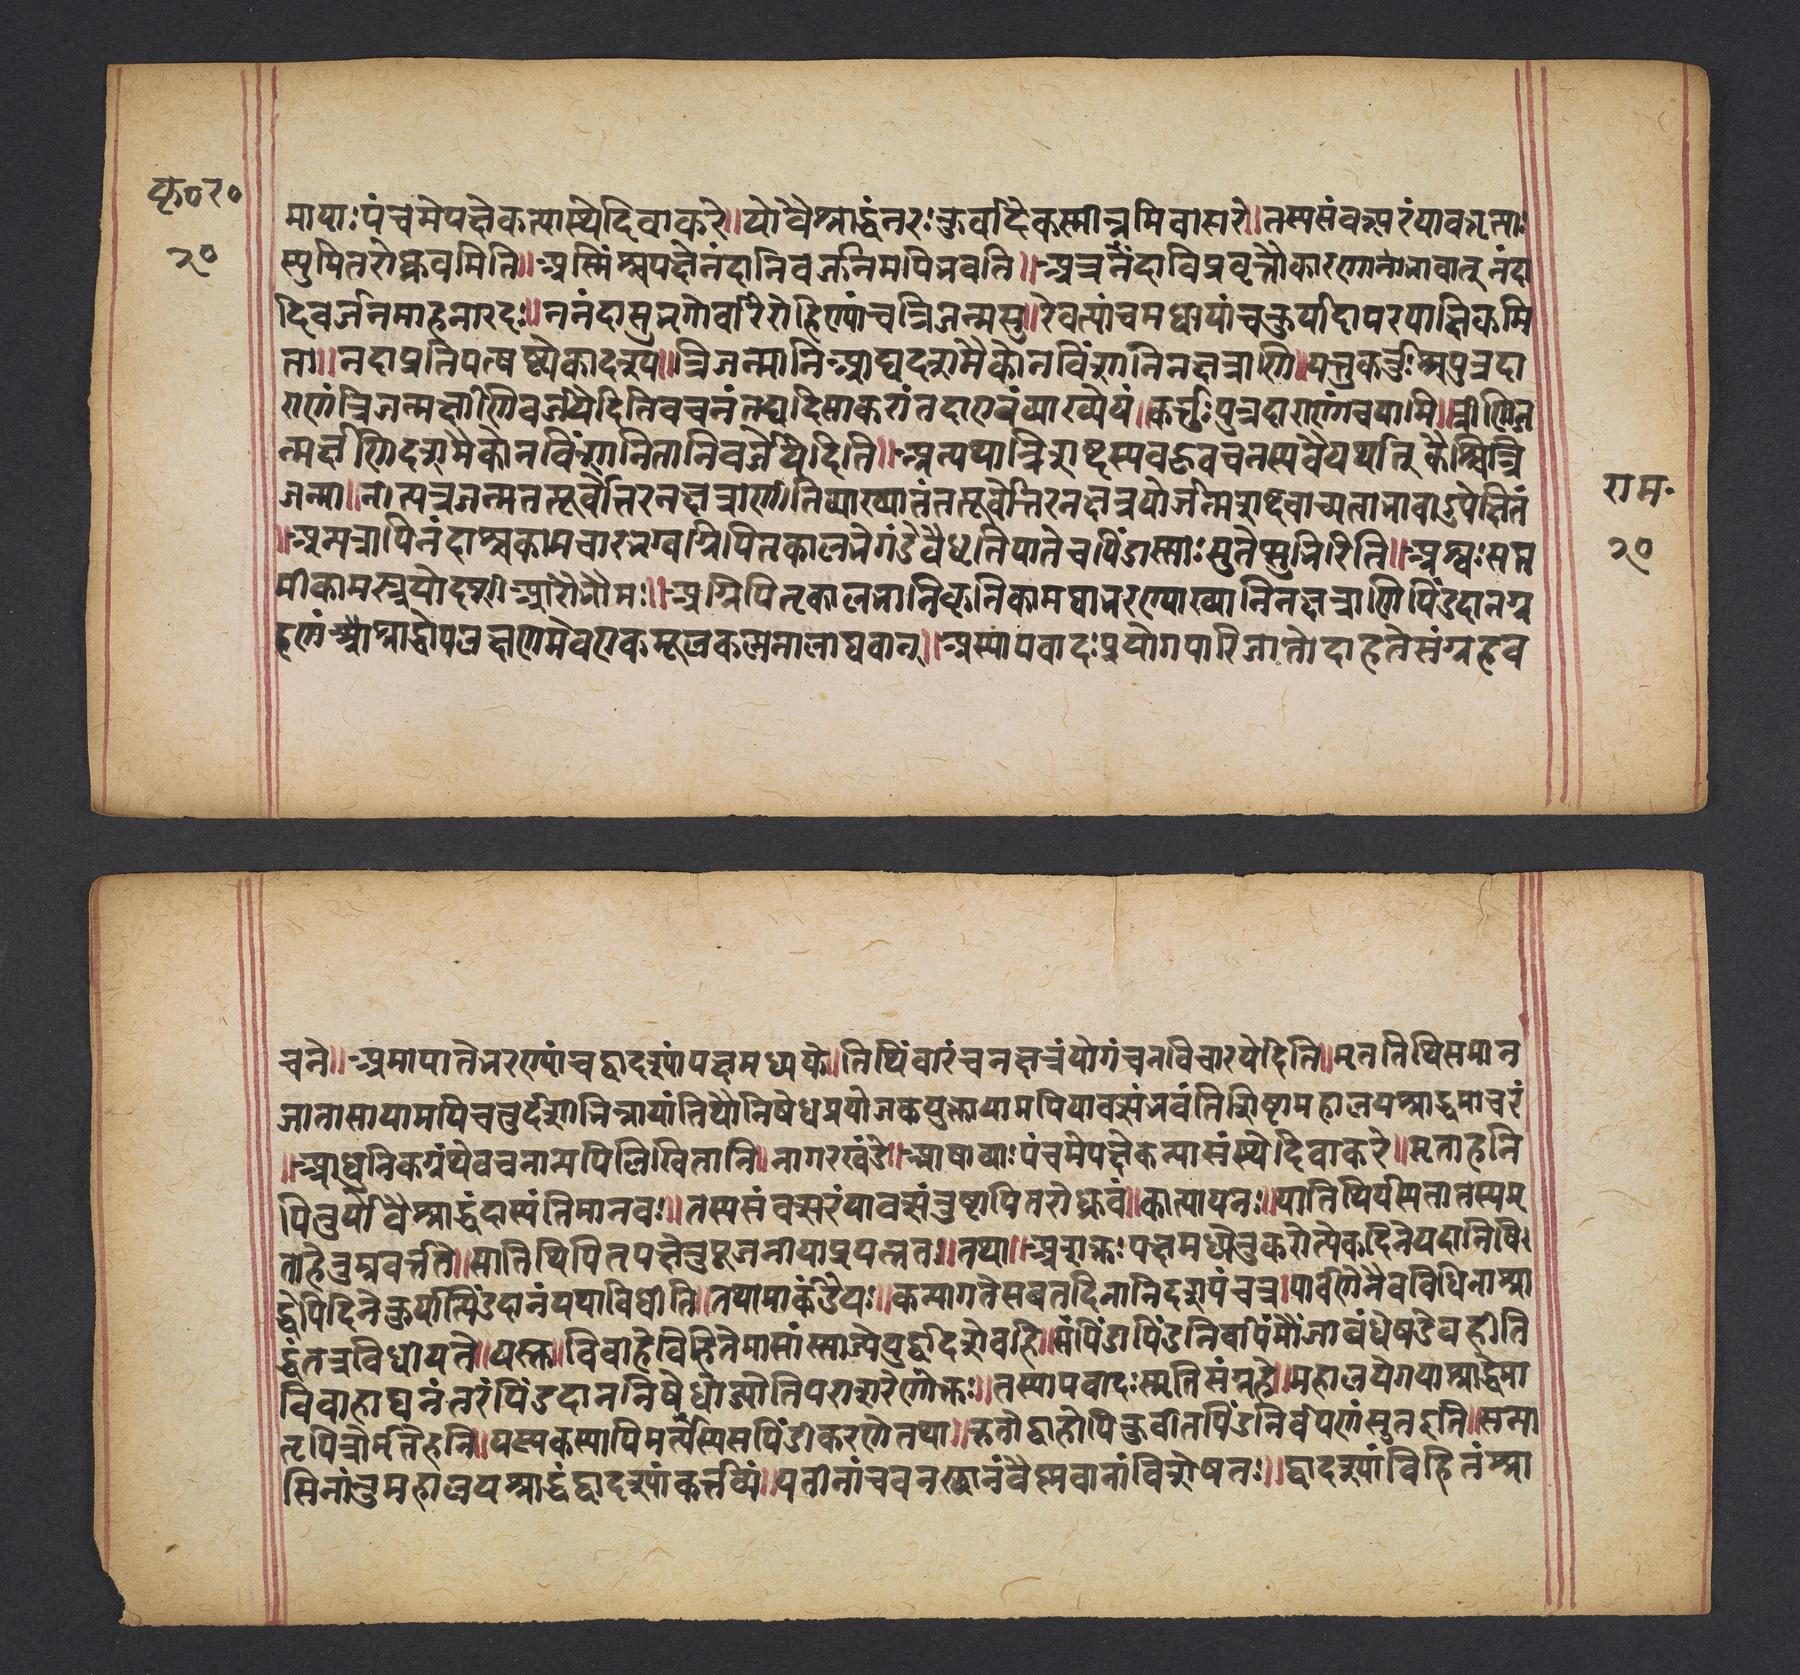 कृ०र०
२०
माषाः पंचमेपक्षेकन्यास्थेदिवाकरे॥योवैश्राद्धंनरःकुर्यादेकस्मीन्नमिवासरे॥तस्यसंवत्सरंयाव
पितरोध्रुवमिति॥अस्मिंश्चपक्षेनंदानिवर्जनमपिभवति॥अत्रनंदाविप्रवृत्तौकारणा नंदा
दिवर्जनमाहनारदः॥ननंदासुभृगोर्वारेरोहिण्यांचत्रिजन्मसु॥रेवत्यांचमघायांचकुर्यादापरपाक्षिकमि
ति॥नंदाप्रतिपत्षष्ट्येकादश्य॥त्रिजन्मानिआद्यदशमैकोनविंशतिनक्षत्राणि॥यत्तुकर्तुःपुत्रदा
राणांत्रिजन्मर्क्षाणिवर्जयेदितिवचनंतद्यदिसाकरांतदाएवंव्याख्येयं॥कर्त्तुःपुत्रदाराणांचयामि॥त्रीणिज
न्मर्क्षाणिदशमैकोनविंशतितानिवर्जयेदिति॥अन्यथात्रिशब्दस्यबहुवचनस्यवैयर्थ्यात्कैश्चित्त्रि
जन्मा॥नीत्यत्रजन्मतत्पूर्वोत्तरनक्षत्राणीतिव्याख्यातंतत्पूर्वोत्तरनक्षत्रयोर्जन्मशब्दवाच्यताभावाऽपेक्षितं
॥अमत्रापिनंदाश्वकामचारभृग्वग्निपितृकालभेगंडेवैधृतिपातेचपिंडास्त्याःसुतेप्सुभिरिति॥अश्वःसप्त
मीकामस्त्रयोदशीआरोभौमः॥अग्निपितृकालभानिकृत्तिकामघाभरण्याख्यानिनक्षत्राणिपिंडदानग्र
हणंश्राद्धोपलक्षणमेवएकमूलकल्पनालाघवात्॥अस्यापवादःप्रयोगपारिजातोदाहृतेसंग्रहव
राम॰
२०
चने॥अमापातेभरण्यांचद्वादश्यांपक्षमध्यके॥तिथिंवारंचनक्षत्रंयोगंचनविचारयेदिति॥मृततिथिसमान
जातासायामपिचतुर्दशीभिन्नायांतिथौनिषेधप्रयोजकयुक्तायामपियावत्संभवंतिशिष्टामहालयश्राद्धमाचरं
॥आधुनिकग्रंथेवचनान्यपिलिखितानि॥नागरखंडे॥आषाढ्याःपंचमेपक्षेकन्यासंस्थेदिवाकरे॥मृताहनि
पितुर्योवैश्राद्धंदास्यंतिमानवः॥तस्यसंवत्सरंयावत्संतुष्टापितरोध्रुवं॥कात्यायनः॥यातिथिर्यस्यतातस्यमृ
ताहेतुप्रवर्त्तते॥सातिथिपितृपक्षेतुपूजनीयाप्रयत्नतः॥तथा॥अशक्तःपक्षमध्येतुकरोत्येकदिनेयदानिषि
द्धेपिदिनेकुर्यात्पिंडदानंयथाविधीति॥तथामार्कंडेयः॥कन्यागतेसवितृदिनानिदशपंचच।पार्वणेनैवविधिनाश्रा
द्धंतत्रविधीयते॥यत्तु॥विवाहेविहितेमासांस्त्यजेयुर्द्वादशैवहि॥सपिंडापिंडनिर्वापंमौंजीबंधेषडेवहीति
विवाहाद्यनंतरंपिंडदाननिषेधोऽस्तीतिपराशरेणोक्तः॥तस्यापवादःस्मृतिसंग्रहे॥महालयेगयाश्राद्धेमा
तृपित्रोर्मृतेहनि॥यस्यकस्यापिमर्त्यस्यसपिंडीकरणेतथा॥कृतोद्वाहोपिकुर्वीतपिंडनिर्वपणंसुतइति॥सन्या
सिनांतुमहालयश्राद्धंद्वादश्यांकर्त्तव्यं॥यतीनांचवनस्थानांवैष्णवानांविशेषतः॥द्वादश्यांविहितंश्रा